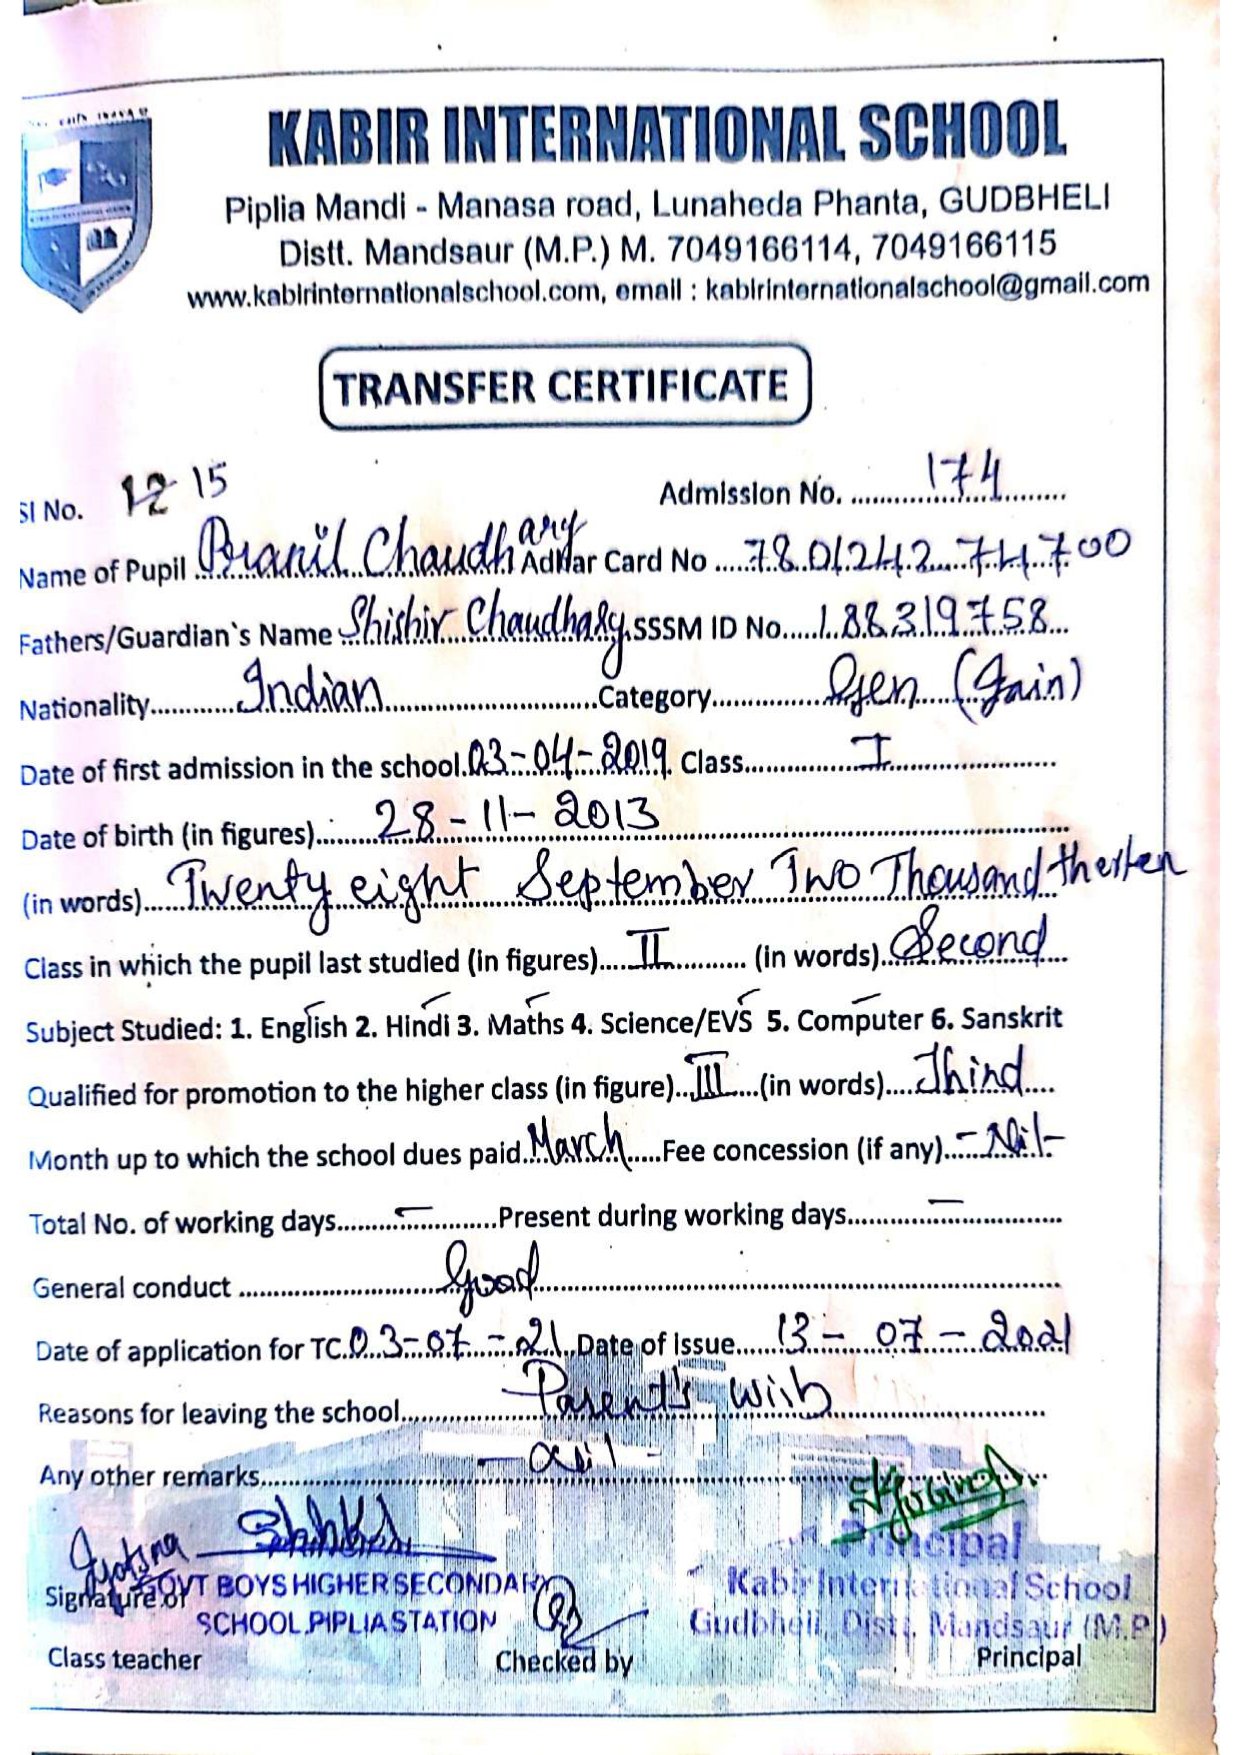 KABIR INTERNATIONAL SCHOOL
Piplia Mandi - Manasa road, Lunaheda Phanta, GUDBHELI
Distt. Mandsaur (M.P.) M. 7049166114, 7049166115
www.kabirinternationalschool.com, email : kabirinternationalschool@gmail.com
TRANSFER CERTIFICATE
Sl No. 12 15 Admission No. 174
Name of Pupil Pranil Chaudhary AdHar Card No 780124274700
Fathers/Guardian`s Name Shishir Chaudhary SSSM ID No. 188319758
Nationality Indian Category Gen (Jain)
Date of first admission in the school. 03-04-2019 Class I
Date of birth (in figures) 28-11-2013
(in words) Twenty eight September Two Thousand therten
Class in which the pupil last studied (in figures) II (in words) Second
Subject Studied: 1. English 2. Hindi 3. Maths 4. Science/EVS 5. Computer 6. Sanskrit
Qualified for promotion to the higher class (in figure) III (in words) Third
Month up to which the school dues paid March Fee concession (if any) - Nil -
Total No. of working days - Present during working days -
General conduct Good
Date of application for TC 03-07-21 Date of Issue 13-07-2021
Reasons for leaving the school Parent's wish
Any other remarks - Nil -
Jyotsna
Principal
Signature of GOVT BOYS HIGHER SECONDARY Kabir International School
SCHOOL,PIPLIA STATION Gudbheli, Distt. Mandsaur (M.P.)
Class teacher Checked by Principal